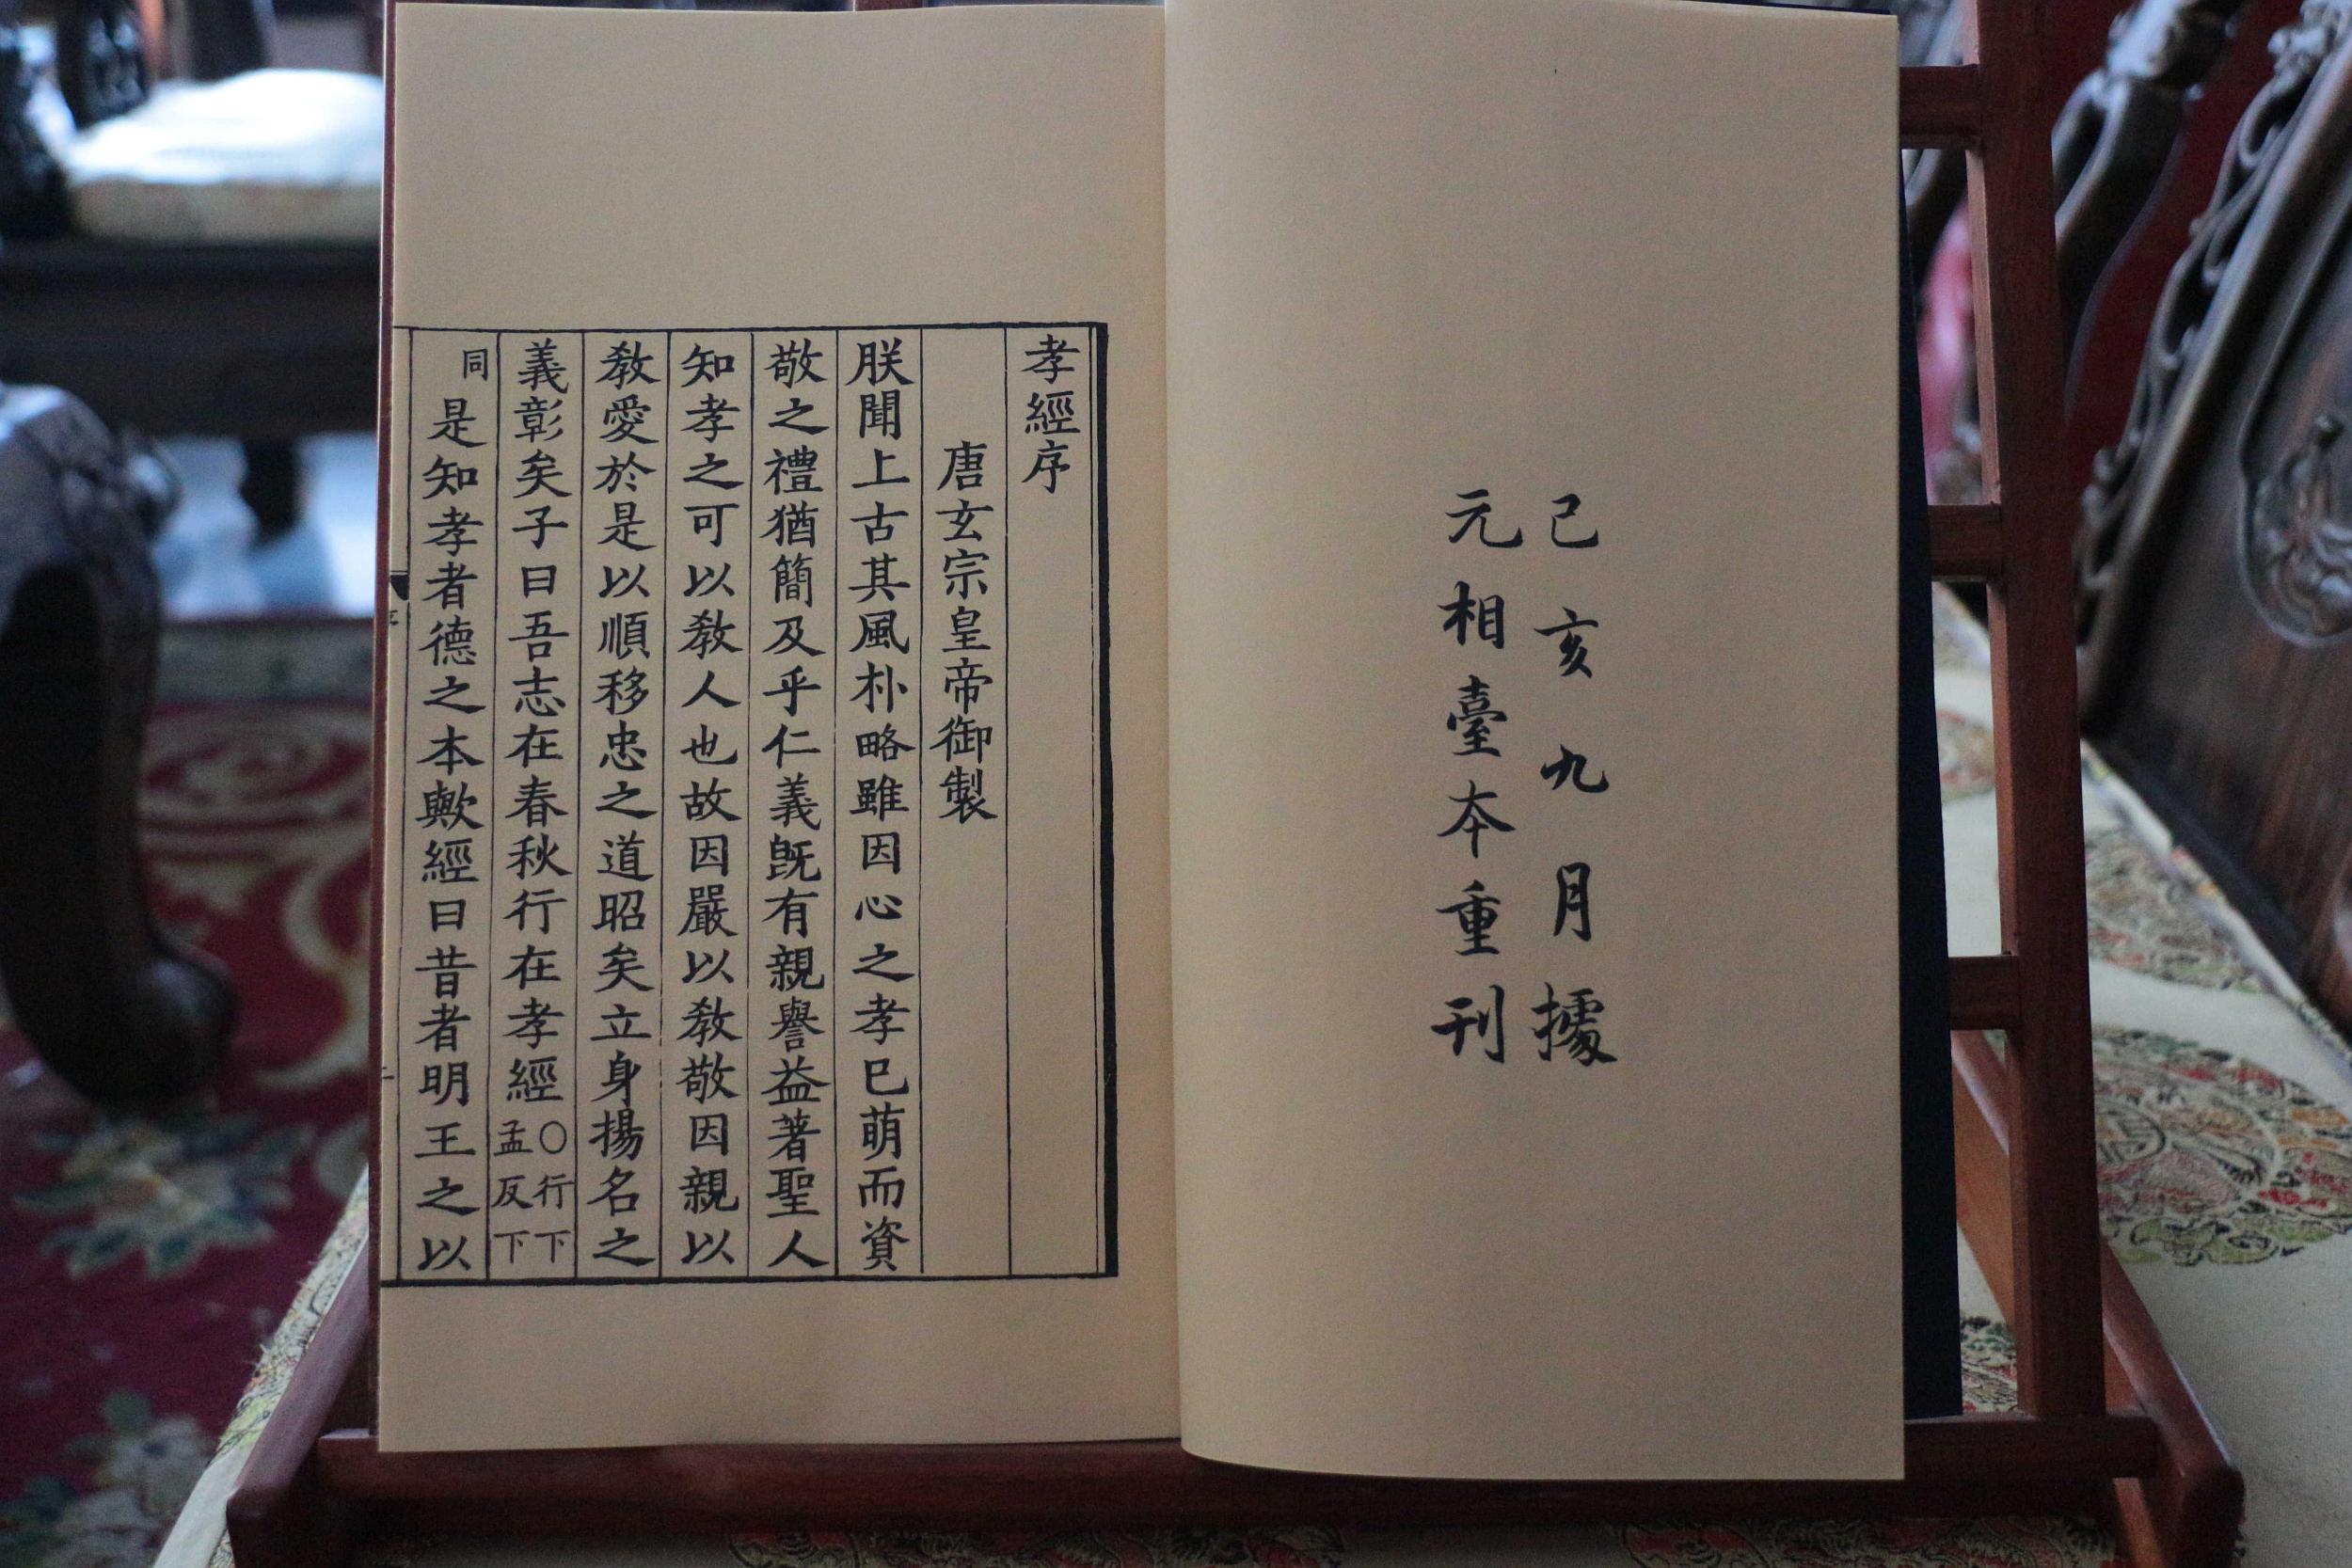 己亥九月據
元相臺本重刊
孝經序
唐玄宗皇帝御製
朕聞上古其風朴略雖因心之孝已萌而資
敬之禮猶簡及乎仁義旣有親譽益著聖人
知孝之可以敎人也故因嚴以敎敬因親以
敎愛於是以順移忠之道昭矣立身揚名之
義彰矣子曰吾志在春秋行在孝經〇行下孟反下
同是知孝者德之本歟經曰昔者明王之以